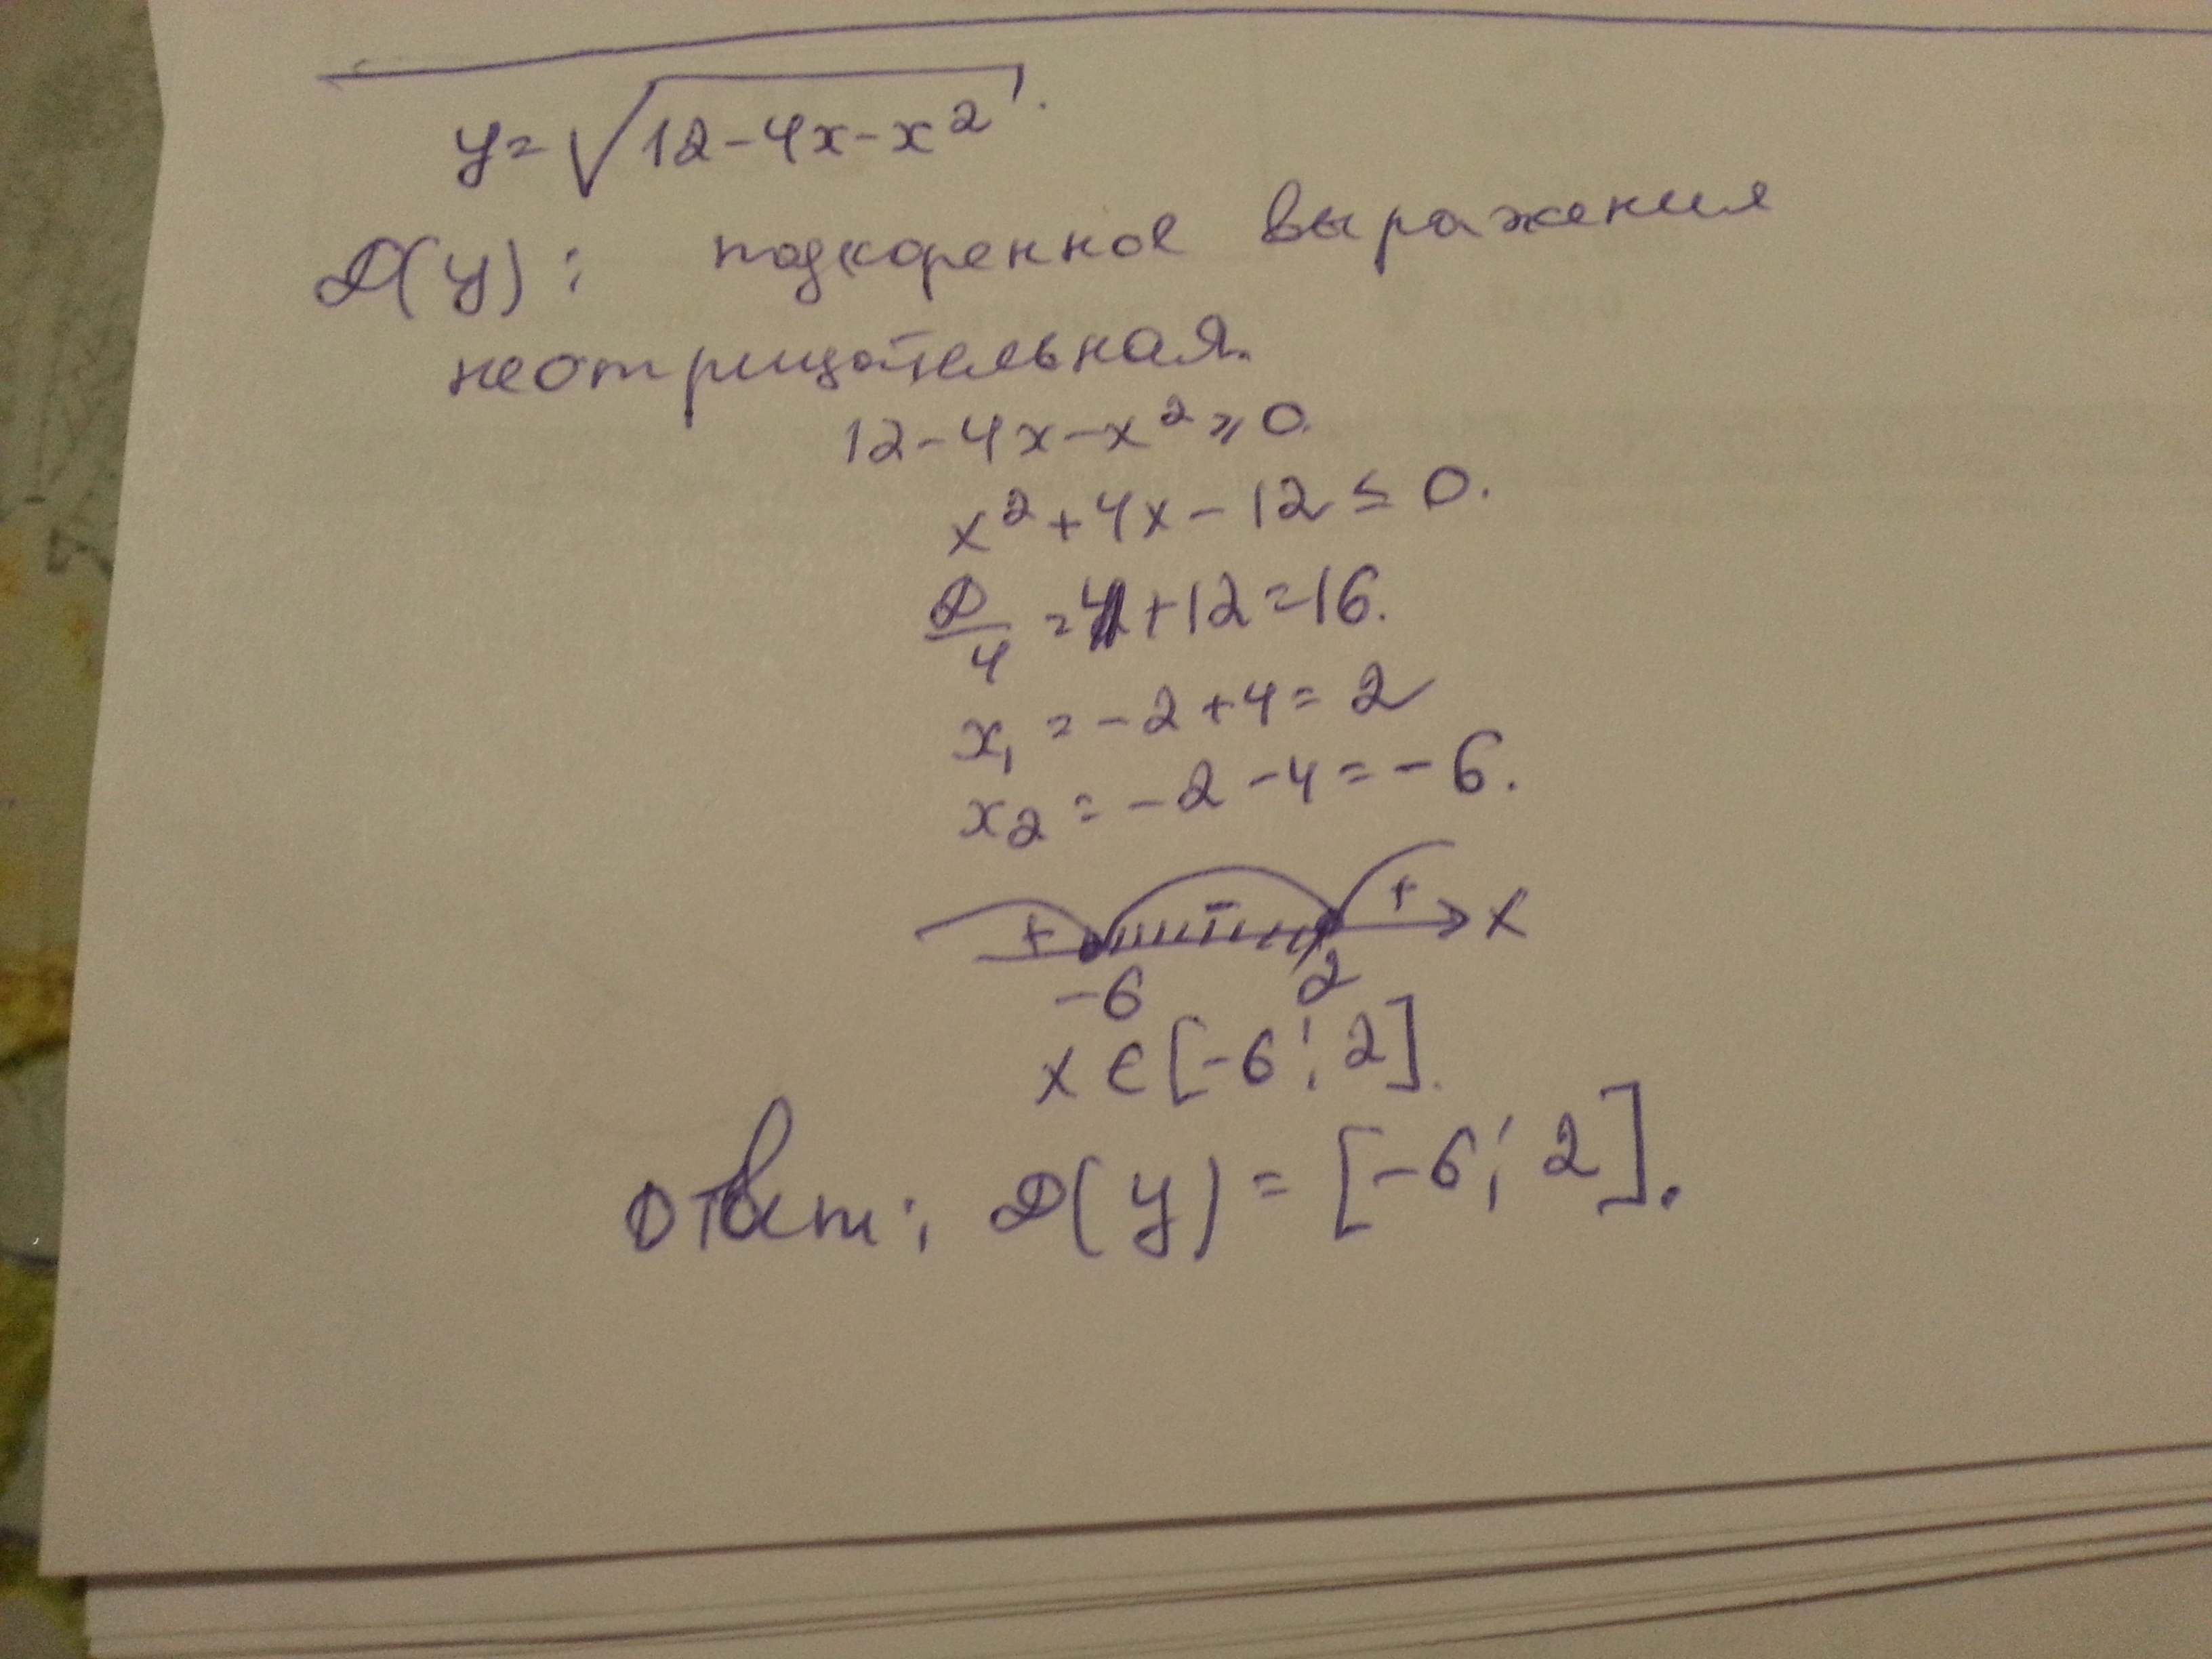 y = √(12-4x-x²).
D(y): подкоренное выражения
неотрицательная.
12-4x-x² ≥ 0.
x²+4x-12 ≤ 0.
D/4 = 4+12=16.
x₁ = -2+4 = 2
x₂ = -2-4 = -6.
+ - + x
-6 2
x ∈ [-6; 2].
Ответ: D(y) = [-6; 2].